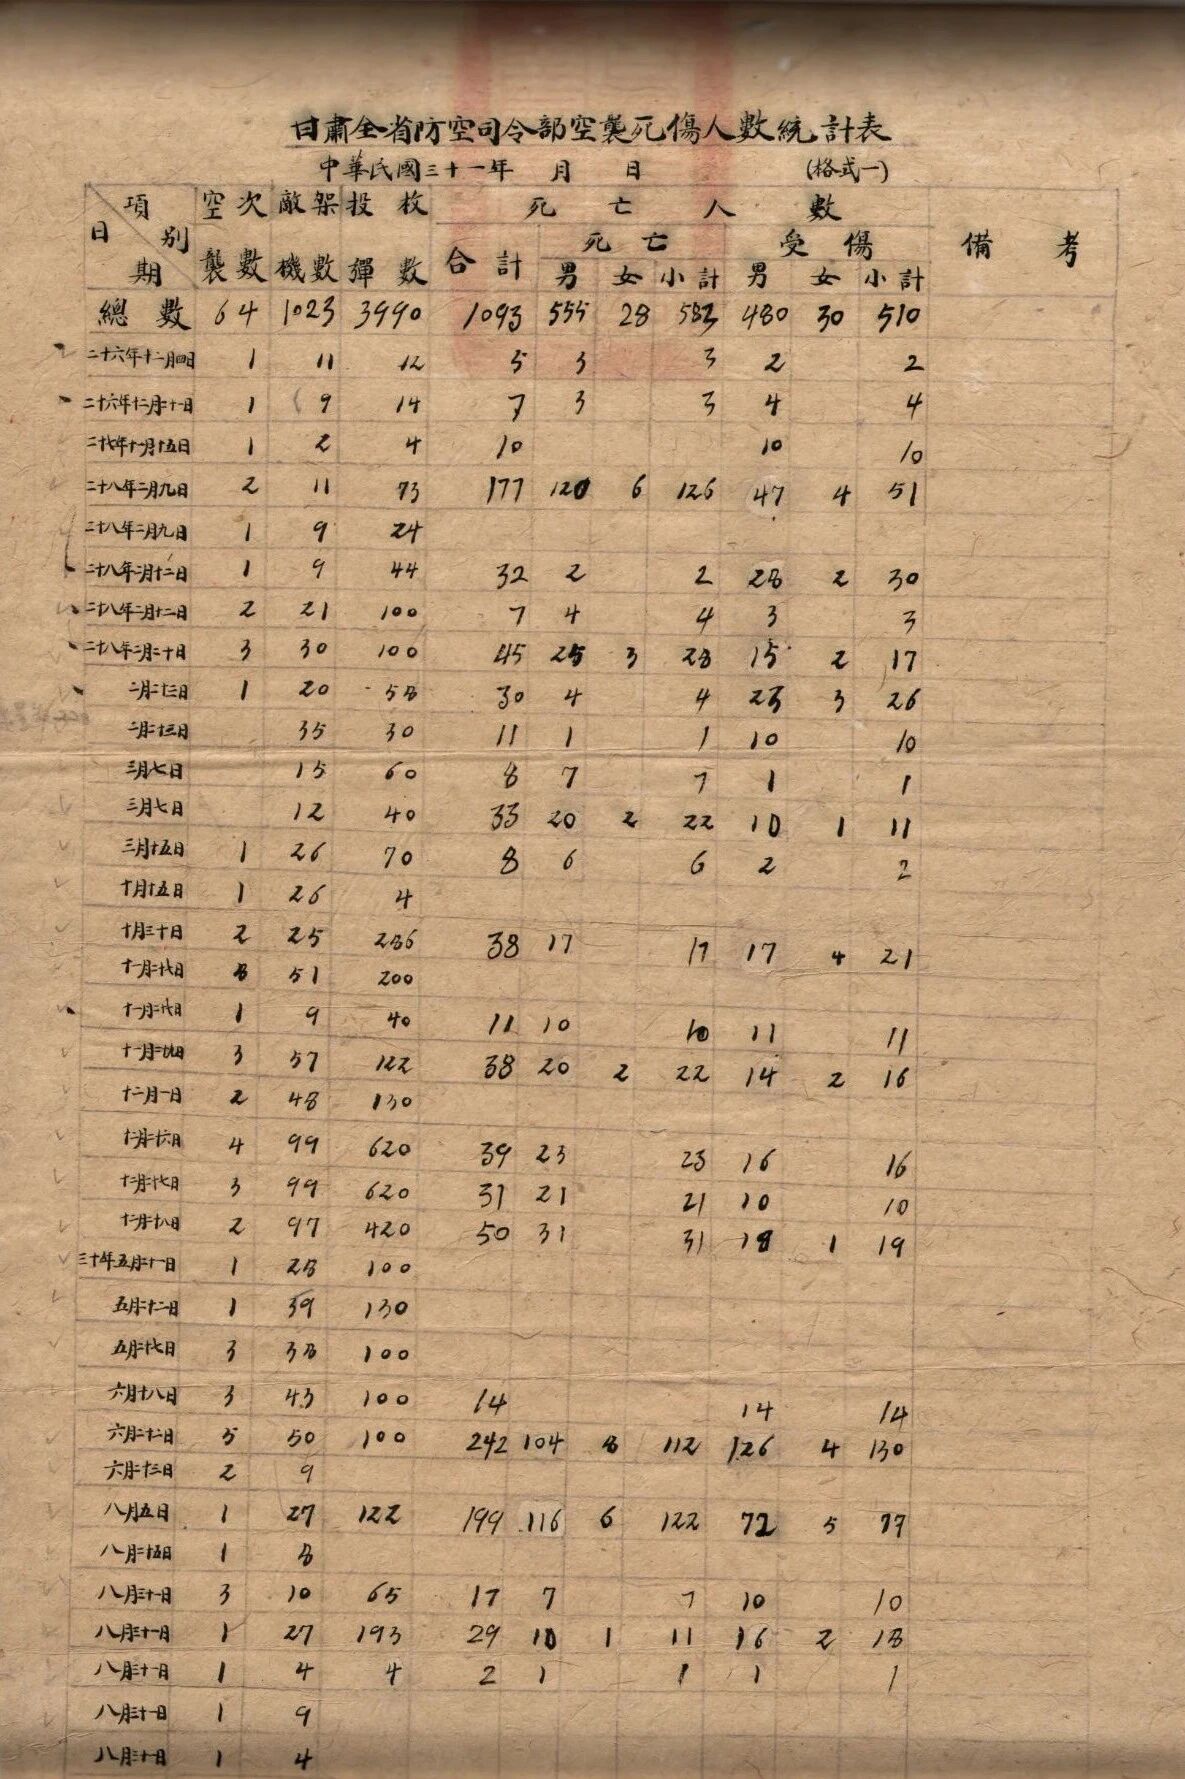 甘肅全省防空司令部空襲死傷人數統計表
中華民國三十一年 月 日 (格式一)
項別 日期 空襲次數 敵機架數 投彈枚數 死亡人數 備考
合計 死亡 受傷
男 女 小計 男 女 小計
總數 64 1023 3990 1093 555 28 583 480 30 510
二十六年十二月四日 1 11 12 5 3 3 2 2
二十六年十二月二十一日 1 9 14 7 3 3 4 4
二十七年十一月十五日 1 2 4 10 10 10
二十八年二月九日 2 11 73 177 120 6 126 47 4 51
二十八年二月九日 1 9 24
二十八年二月十二日 1 9 44 32 2 2 28 2 30
二十八年二月十二日 2 21 100 7 4 4 3 3
二十八年二月二十日 3 30 100 45 25 3 28 15 2 17
二月二十三日 1 20 58 30 4 4 23 3 26
二月二十三日 35 30 11 1 1 10 10
三月七日 15 60 8 7 7 1 1
三月七日 12 40 33 20 2 22 10 1 11
三月十五日 1 26 70 8 6 6 2 2
十月十五日 1 26 4
十月三十日 2 25 286 38 17 17 17 4 21
十一月二十七日 51 200
十一月二十七日 1 9 40 11 10 10 11 11
十一月二十九日 3 57 122 38 20 2 22 14 2 16
十二月一日 2 48 130
十二月二十六日 4 99 620 39 23 23 16 16
十二月二十七日 3 99 620 31 21 21 10 10
十二月二十八日 2 97 420 50 31 31 18 1 19
三十年五月二十一日 1 28 100
五月二十二日 1 39 130
五月二十七日 3 38 100
六月十八日 3 43 100 14 14 14
六月二十二日 5 50 100 242 104 8 112 126 4 130
六月二十三日 2 9
八月五日 1 27 122 199 116 6 122 72 5 77
八月二十五日 1 8
八月三十一日 3 10 65 17 7 7 10 10
八月三十一日 1 27 193 29 10 1 11 16 2 18
八月三十一日 1 4 4 2 1 1 1 1
八月三十一日 1 9
八月三十一日 1 4